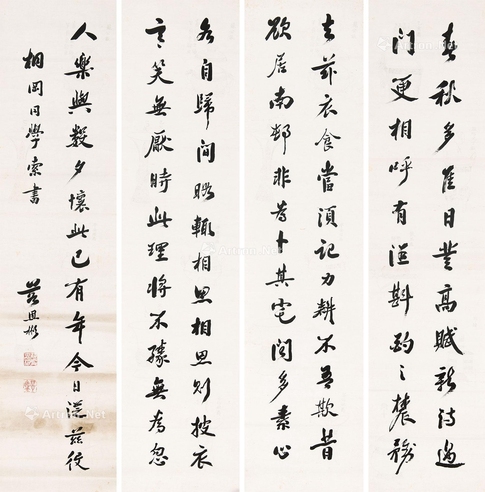 春秋多佳日登高賦新詩過
门更相呼有酒斟酌之農務
去兹衣食當須記力耕不吾欺昔
欲居南邨非為卜其宅聞多素心
各自歸閒暇輒相思相思則披衣
言笑無厭時此理將不勝無為忽
人樂與數夕懷此已有年今日從茲役
桐岡同學索書
Artron.Net